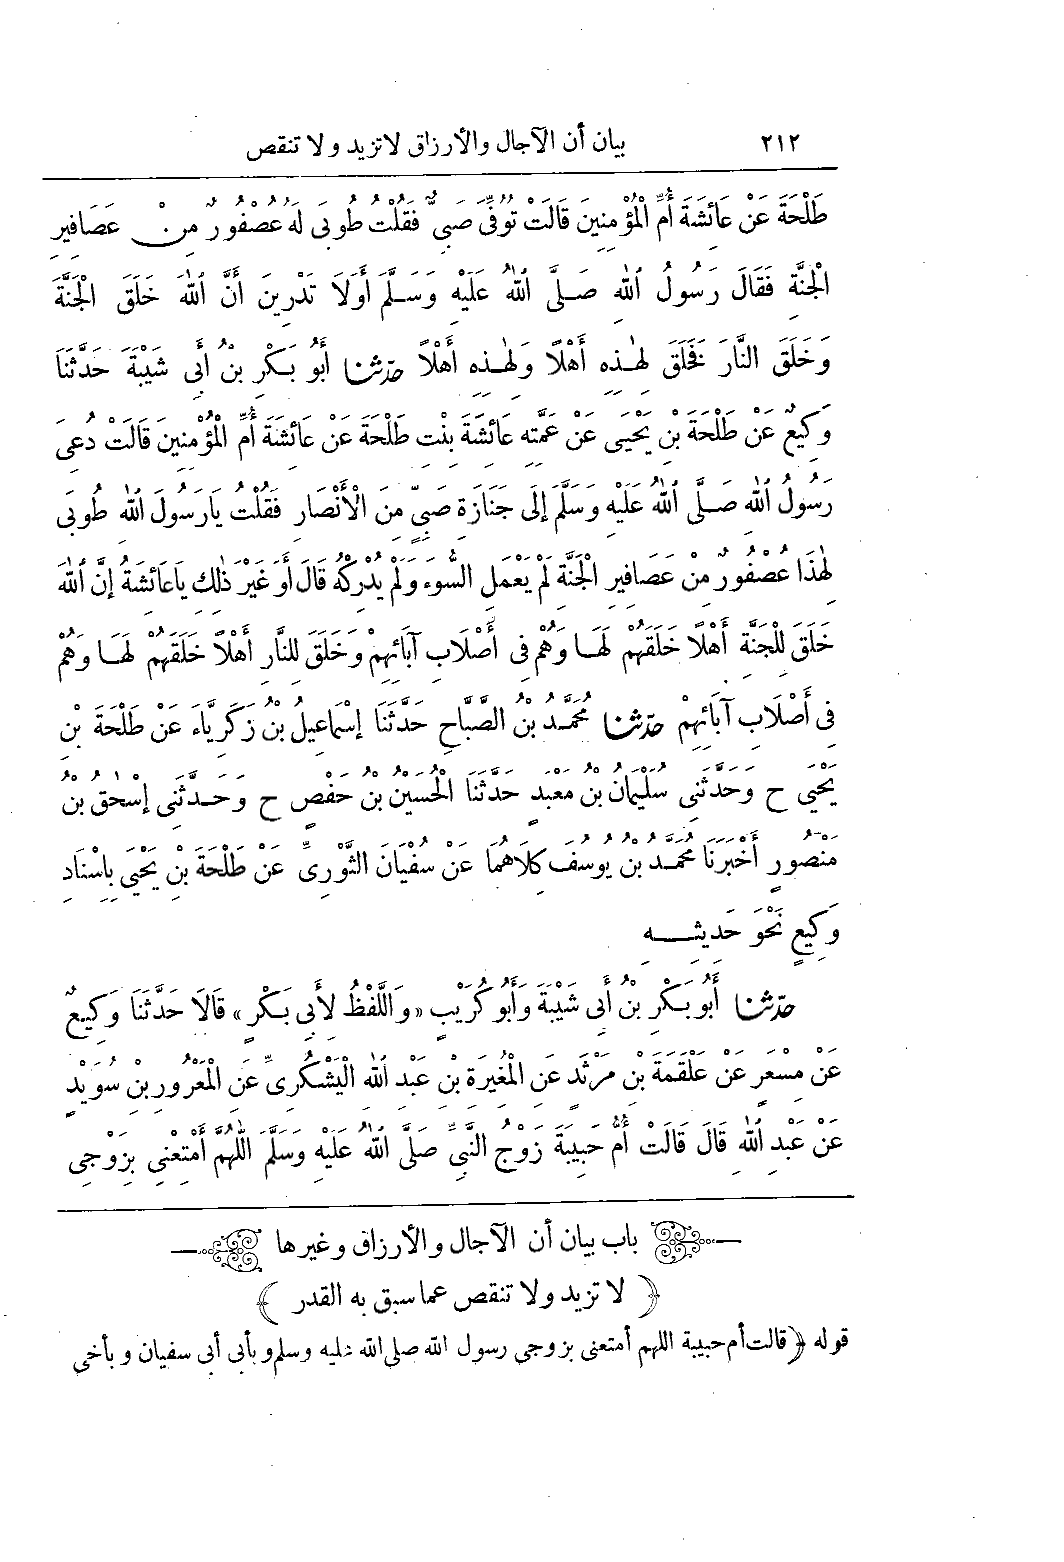 ٢١٢ بيان أن الآجال والأرزاق لا تزيد ولا تنقص
طَلْحَةَ عَنْ عَائِشَةَ أُمِّ الْمُؤْمِنِينَ قَالَتْ تُوُفِّيَ صَبِيٌّ فَقُلْتُ طُوبَى لَهُ عُصْفُورٌ مِنْ عَصَافِيرِ
الْجَنَّةِ فَقَالَ رَسُولُ اللهِ صَلَّى اللهُ عَلَيْهِ وَسَلَّمَ أَوَلَا تَدْرِينَ أَنَّ اللهَ خَلَقَ الْجَنَّةَ
وَخَلَقَ النَّارَ فَخَلَقَ لِهٰذِهِ أَهْلًا وَلِهٰذِهِ أَهْلًا حدّثنا أَبُو بَكْرِ بْنُ أَبِي شَيْبَةَ حَدَّثَنَا
وَكِيعٌ عَنْ طَلْحَةَ بْنِ يَحْيَى عَنْ عَمَّتِهِ عَائِشَةَ بِنْتِ طَلْحَةَ عَنْ عَائِشَةَ أُمِّ الْمُؤْمِنِينَ قَالَتْ دُعِيَ
رَسُولُ اللهِ صَلَّى اللهُ عَلَيْهِ وَسَلَّمَ إِلَى جَنَازَةِ صَبِيٍّ مِنَ الْأَنْصَارِ فَقُلْتُ يَارَسُولَ اللهِ طُوبَى
لِهٰذَا عُصْفُورٌ مِنْ عَصَافِيرِ الْجَنَّةِ لَمْ يَعْمَلِ السُّوءَ وَلَمْ يُدْرِكْهُ قَالَ أَوَ غَيْرَ ذٰلِكِ يَاعَائِشَةُ إِنَّ اللهَ
خَلَقَ لِلْجَنَّةِ أَهْلًا خَلَقَهُمْ لَهَا وَهُمْ فِي أَصْلَابِ آبَائِهِمْ وَخَلَقَ لِلنَّارِ أَهْلًا خَلَقَهُمْ لَهَا وَهُمْ
فِي أَصْلَابِ آبَائِهِمْ حدّثنا مُحَمَّدُ بْنُ الصَّبَّاحِ حَدَّثَنَا إِسْمَاعِيلُ بْنُ زَكَرِيَّاءَ عَنْ طَلْحَةَ بْنِ
يَحْيَى ح وَحَدَّثَنِي سُلَيْمَانُ بْنُ مَعْبَدٍ حَدَّثَنَا الْحُسَيْنُ بْنُ حَفْصٍ ح وَحَدَّثَنِي إِسْحٰقُ بْنُ
مَنْصُورٍ أَخْبَرَنَا مُحَمَّدُ بْنُ يُوسُفَ كِلَاهُمَا عَنْ سُفْيَانَ الثَّوْرِيِّ عَنْ طَلْحَةَ بْنِ يَحْيَى بِإِسْنَادِ
وَكِيعٍ نَحْوَ حَدِيثِهِ
حدّثنا أَبُو بَكْرِ بْنُ أَبِي شَيْبَةَ وَأَبُو كُرَيْبٍ «وَاللَّفْظُ لِأَبِي بَكْرٍ» قَالَا حَدَّثَنَا وَكِيعٌ
عَنْ مِسْعَرٍ عَنْ عَلْقَمَةَ بْنِ مَرْثَدٍ عَنِ الْمُغِيرَةِ بْنِ عَبْدِ اللهِ الْيَشْكُرِيِّ عَنِ الْمَعْرُورِ بْنِ سُوَيْدٍ
عَنْ عَبْدِ اللهِ قَالَ قَالَتْ أُمُّ حَبِيبَةَ زَوْجُ النَّبِيِّ صَلَّى اللهُ عَلَيْهِ وَسَلَّمَ اللّٰهُمَّ أَمْتِعْنِي بِزَوْجِي
باب بيان أن الآجال والأرزاق وغيرها
﴿ لا تزيد ولا تنقص عما سبق به القدر ﴾
قوله ﴿قالت أم حبيبة اللهم أمتعني بزوجي رسول الله صلى الله عليه وسلم وبأبي أبي سفيان وبأخي